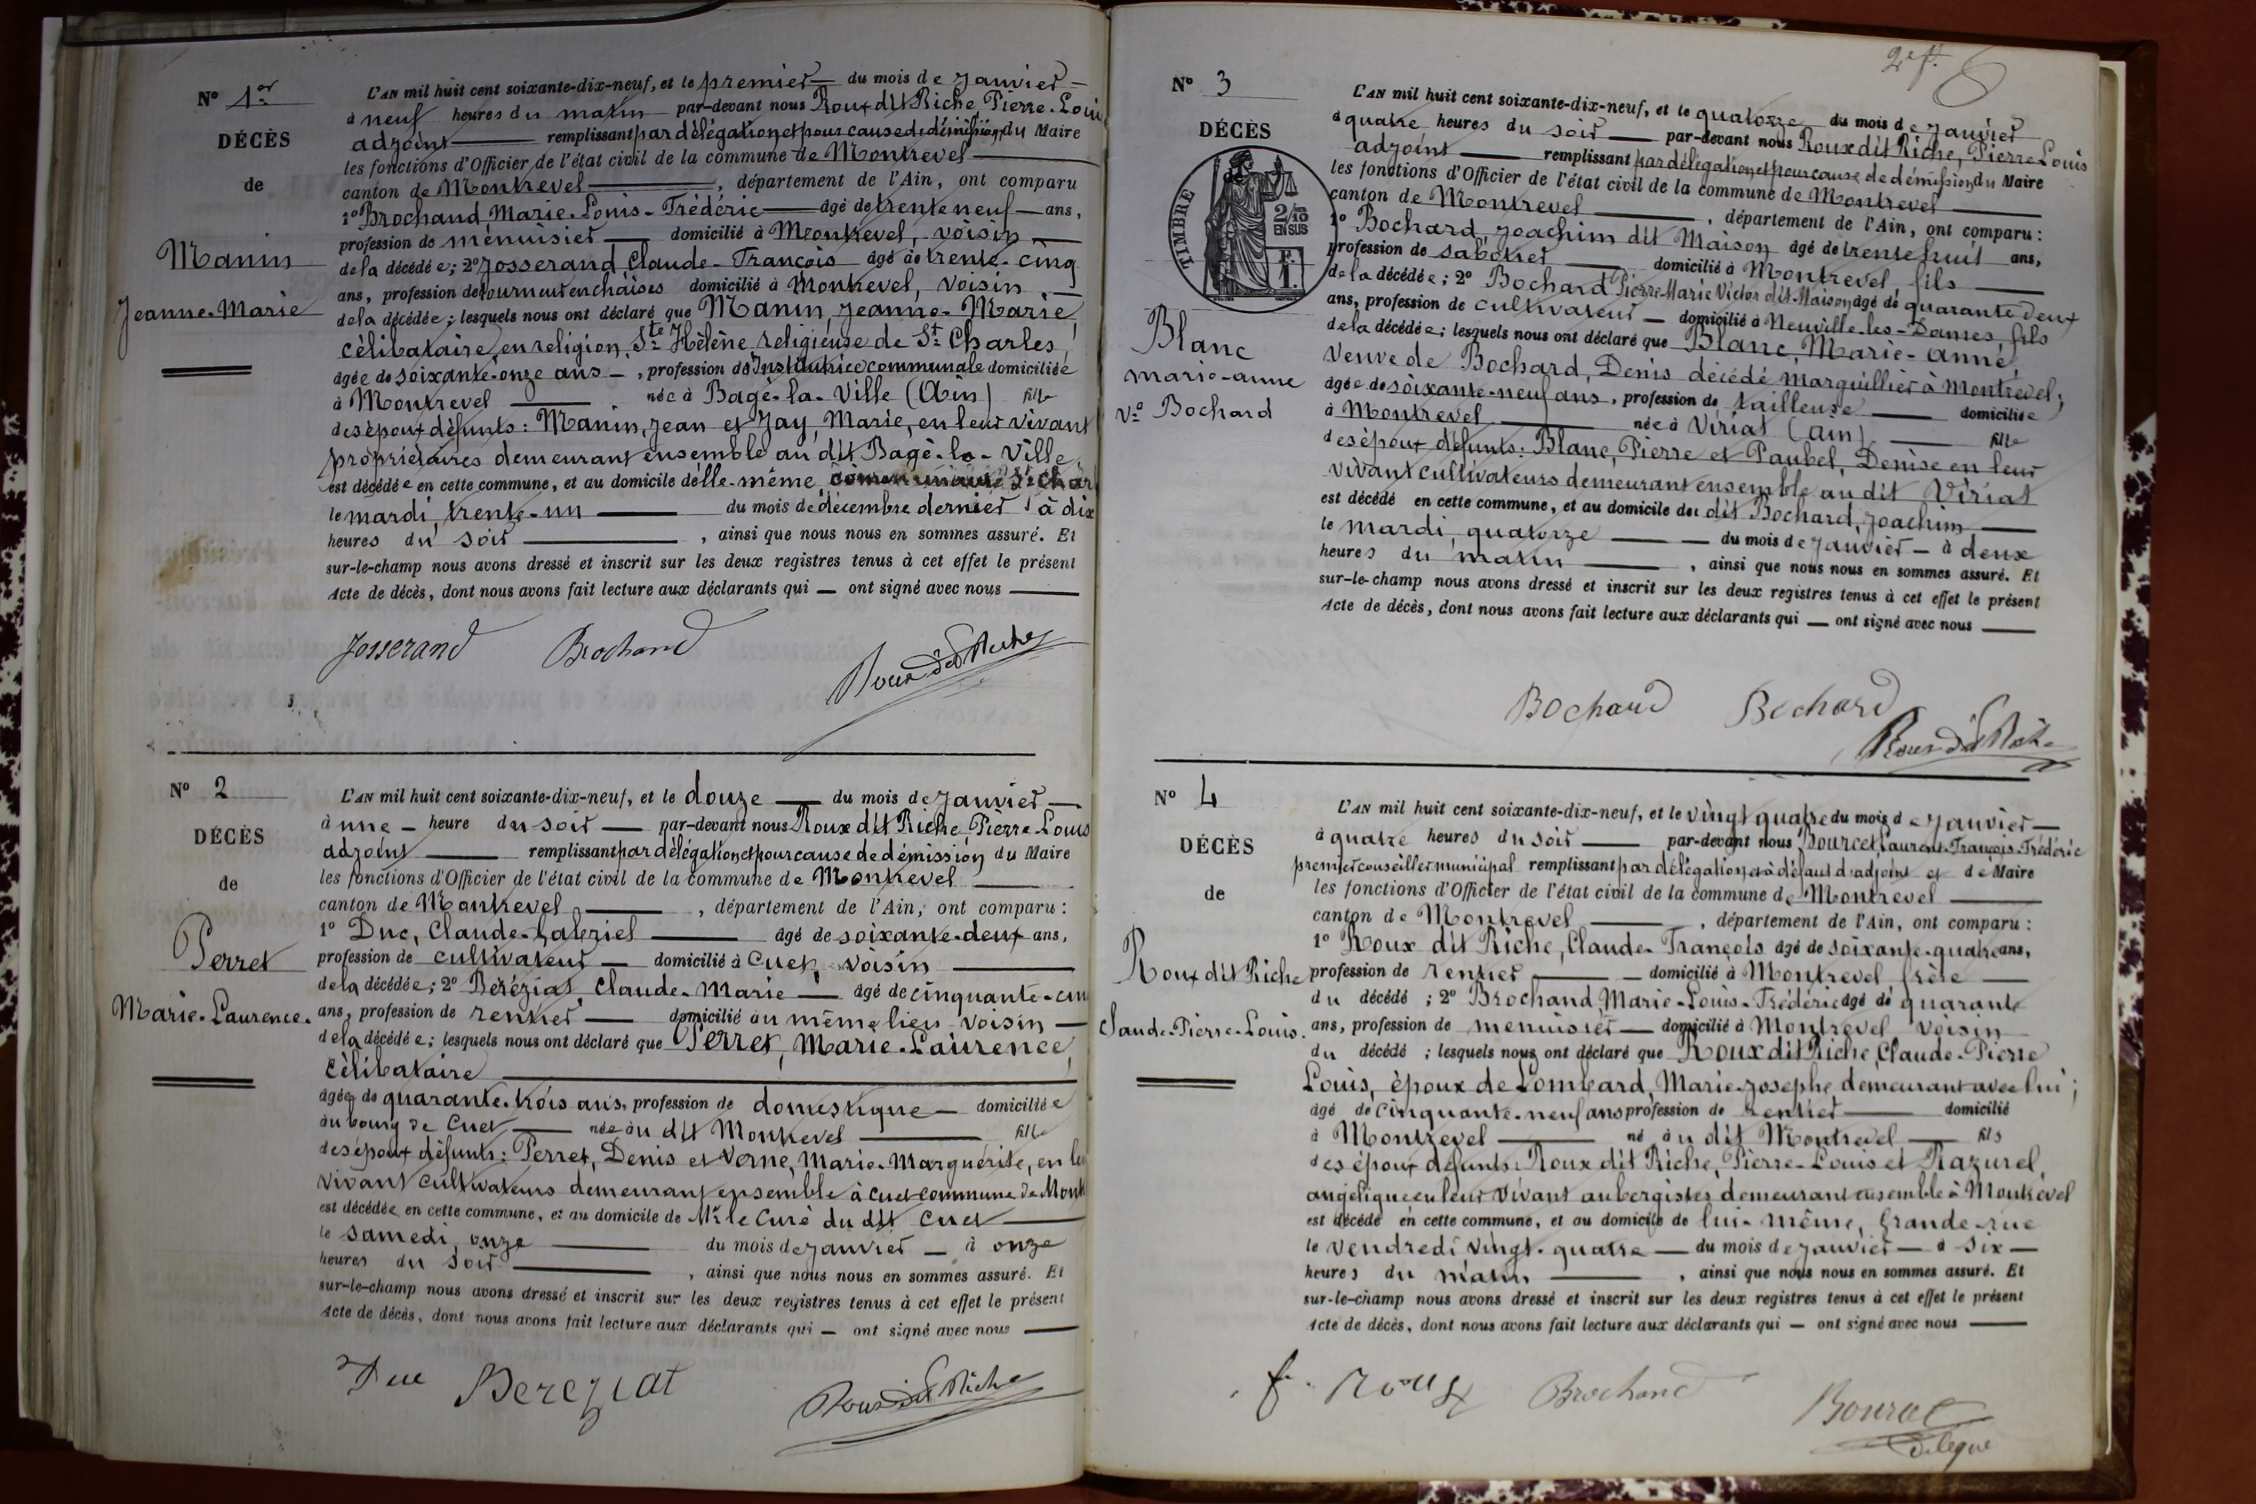 N° 1er
DÉCÈS
de
Manin
Jeanne-Marie
L'AN mil huit cent soixante-dix-neuf, et le premier du mois de Janvier
à neuf heures du matin par-devant nous Roux dit Riche Pierre-Loui
adjoint remplissant par délégation et pour cause de démission du Maire
les fonctions d'Officier de l'état civil de la commune de Montrevel
canton de Montrevel, département de l'Ain, ont comparu
1° Brochand Marie-Louis-Frédéric âgé de trente neuf ans,
profession de menuisier domicilié à Montrevel, voisin
de la décédée; 2° Josserand Claude-François âgé de trente-cinq
ans, profession de tourneur en chaises domicilié à Montrevel, voisin
de la décédée; lesquels nous ont déclaré que Manin, Jeanne-Marie,
célibataire, en religion, Ste Hélène, religieuse de St Charles,
âgée de soixante-onze ans, profession d'Institutrice communale domiciliée
à Montrevel née à Bagé-la-Ville (Ain) fille
des époux défunts: Manin, Jean et Jay, Marie, en leur vivant
propriétaires demeurant ensemble au dit Bagé-la-Ville
est décédée en cette commune, et au domicile d'elle-même, St Char
le mardi, trente-un du mois de décembre dernier à dix
heures du soir, ainsi que nous nous en sommes assuré. Et
sur-le-champ nous avons dressé et inscrit sur les deux registres tenus à cet effet le présent
Acte de décès, dont nous avons fait lecture aux déclarants qui — ont signé avec nous
Josserand Brochand Roux dit Riche
N° 2
DÉCÈS
de
Perret
Marie-Laurence.
L'AN mil huit cent soixante-dix-neuf, et le douze du mois de Janvier
à une heure du soir par-devant nous Roux dit Riche Pierre-Louis
adjoint remplissant par délégation et pour cause de démission du Maire
les fonctions d'Officier de l'état civil de la commune de Montrevel
canton de Montrevel, département de l'Ain, ont comparu:
1° Duc, Claude-Gabriel âgé de soixante-deux ans,
profession de cultivateur domicilié à Cuet, voisin
de la décédée; 2° Béréziat, Claude-Marie âgé de cinquante-cin
ans, profession de rentier domicilié au même lieu voisin
de la décédée; lesquels nous ont déclaré que Perret, Marie-Laurence,
célibataire
âgée de quarante-trois ans, profession de domestique domiciliée
au bourg de Cuet née au dit Montrevel fille
des époux défunts: Perret, Denis et Verne, Marie-Marguerite, en le
vivant cultivateurs demeurant ensemble à Cuet commune de Mont
est décédée en cette commune, et au domicile de Mr le Curé du dit Cuet
le samedi, onze du mois de Janvier à onze
heures du soir, ainsi que nous nous en sommes assuré. Et
sur-le-champ nous avons dressé et inscrit sur les deux registres tenus à cet effet le présent
Acte de décès, dont nous avons fait lecture aux déclarants qui — ont signé avec nous
Duc Bereziat Roux dit Riche
2e f.
N° 3
DÉCÈS
de
TIMBRE
2/10 EN SUS
F. 1.
Blanc
marie-anne
Ve Bochard
L'AN mil huit cent soixante-dix-neuf, et le quatorze du mois de Janvier
à quatre heures du soir par-devant nous Roux dit Riche, Pierre Louis
adjoint remplissant par délégation et pour cause de démission du Maire
les fonctions d'Officier de l'état civil de la commune de Montrevel
canton de Montrevel, département de l'Ain, ont comparu:
1° Bochard, Joachim dit Maison âgé de trente huit ans,
profession de sabotier domicilié à Montrevel, fils
de la décédée; 2° Bochard Pierre-Marie Victor dit Maison âgé de quarante deux
ans, profession de cultivateur domicilié à Neuville-les-Dames, fils
de la décédée; lesquels nous ont déclaré que Blanc, Marie-anne,
veuve de Bochard, Denis décédé marguillier à Montrevel,
âgée de soixante-neuf ans, profession de tailleuse domiciliée
à Montrevel née à Viriat (ain) fille
des époux défunts: Blanc, Pierre et Paubel, Denise en leur
vivant cultivateurs demeurant ensemble au dit Viriat
est décédé en cette commune, et au domicile du dit Bochard, Joachim
le mardi, quatorze du mois de Janvier à deux
heures du matin, ainsi que nous nous en sommes assuré. Et
sur-le-champ nous avons dressé et inscrit sur les deux registres tenus à cet effet le présent
Acte de décès, dont nous avons fait lecture aux déclarants qui — ont signé avec nous
Bochard Bochard Roux dit Riche
N° 4
DÉCÈS
de
Roux dit Riche
Claude-Pierre-Louis.
L'AN mil huit cent soixante-dix-neuf, et le vingt quatre du mois de Janvier
à quatre heures du soir par-devant nous Bourcet, Laurent-François-Frédéric
premier conseiller municipal remplissant par délégation et à défaut d'adjoint et de Maire
les fonctions d'Officier de l'état civil de la commune de Montrevel
canton de Montrevel, département de l'Ain, ont comparu:
1° Roux dit Riche, Claude-François âgé de soixante-quatre ans,
profession de rentier domicilié à Montrevel frère
du décédé; 2° Brochand, Marie-Louis-Frédéric âgé de quarante
ans, profession de menuisier domicilié à Montrevel voisin
du décédé; lesquels nous ont déclaré que Roux dit Riche, Claude-Pierre
Louis, époux de Lombard, Marie-Josephe demeurant avec lui;
âgé de cinquante-neuf ans profession de rentier domicilié
à Montrevel né au dit Montrevel fils
des époux défunts: Roux dit Riche, Pierre-Louis et Razurel,
angélique en leur vivant aubergistes demeurant ensemble à Montrevel
est décédé en cette commune, et au domicile de lui-même, Grande-rue
le vendredi vingt-quatre du mois de Janvier à six
heures du matin, ainsi que nous nous en sommes assuré. Et
sur-le-champ nous avons dressé et inscrit sur les deux registres tenus à cet effet le présent
Acte de décès, dont nous avons fait lecture aux déclarants qui — ont signé avec nous
f. Roux Brochand Bourcet
délégué